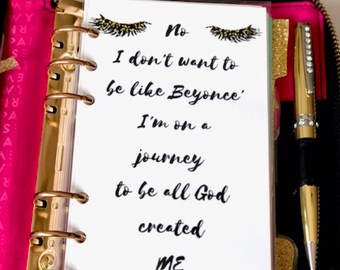 No
I don't want to
be like Beyonce'
I'm on a
journey
to be all God
created
ME